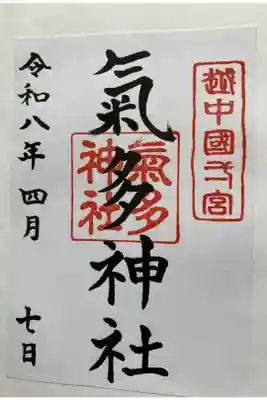 越中國一宮
氣多神社
氣多
神社
令和八年 四月 七日